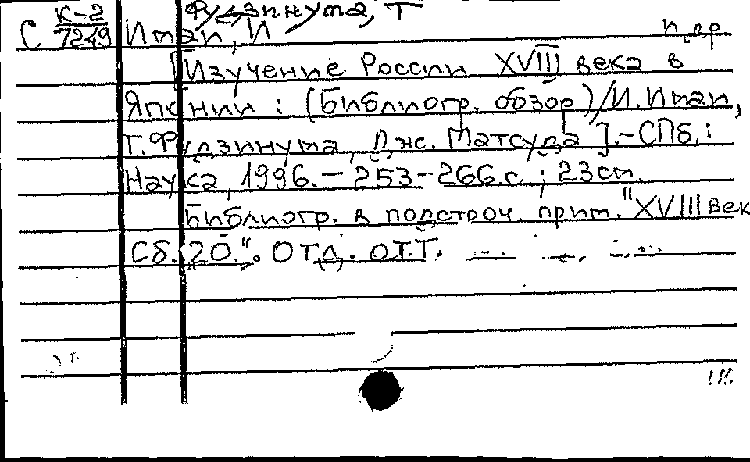 Фудзинума, Т
С К-2 7249 Имаи, И и др
[Изучение России XVIII века в
Японии : (Библиогр. обзор) / И. Имаи,
Т. Фудзинума, Дж. Матсуда ]. - СПб. :
Наука, 1996. - 253-266 с. ; 23 см.
Библиогр. в подстроч. прим. "XVIII век
Сб. 20". Отд. отт.